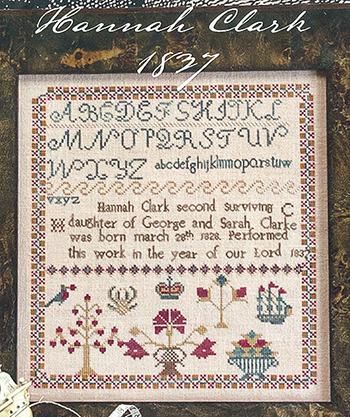 Hannah Clark
1837
ABCDEFGHIJKL
MNOPQRSTUV
WXYZ abcdefghijklmnopqrstuw
vxyz
Hannah Clark second surviving C
daughter of George and Sarah Clarke
was born march 28th 1828. Performed
this work in the year of our Lord 1837